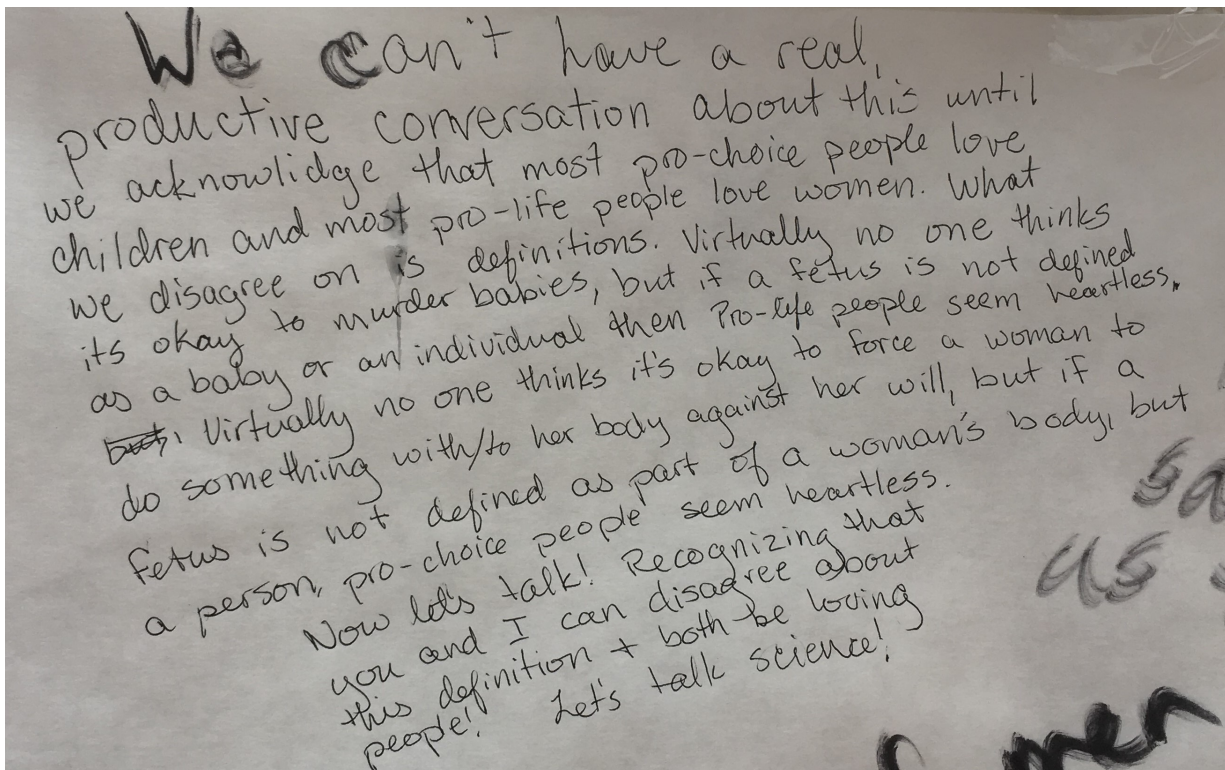 We can't have a real,
productive conversation about this until
we acknowlidge that most pro-choice people love
children and most pro-life people love women. What
we disagree on is definitions. Virtually no one thinks
its okay to murder babies, but if a fetus is not defined
as a baby or an individual then Pro-life people seem heartless.
but, Virtually no one thinks it's okay to force a woman to
do something with/to her body against her will, but if a
fetus is not defined as part of a woman's body, but
a person, pro-choice people seem heartless.
Now let's talk! Recognizing that
you and I can disagree about
this definition + both be loving
people! Let's talk science!
sa
us
men